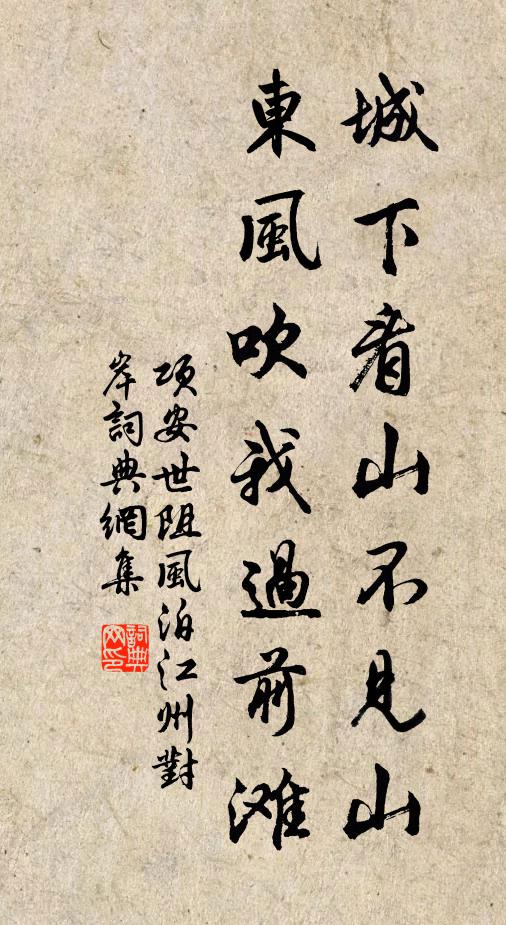 城下看山不見山
東風吹我過前滩
項安世阻風泊江州對
岸詞典網集
詞典
网印